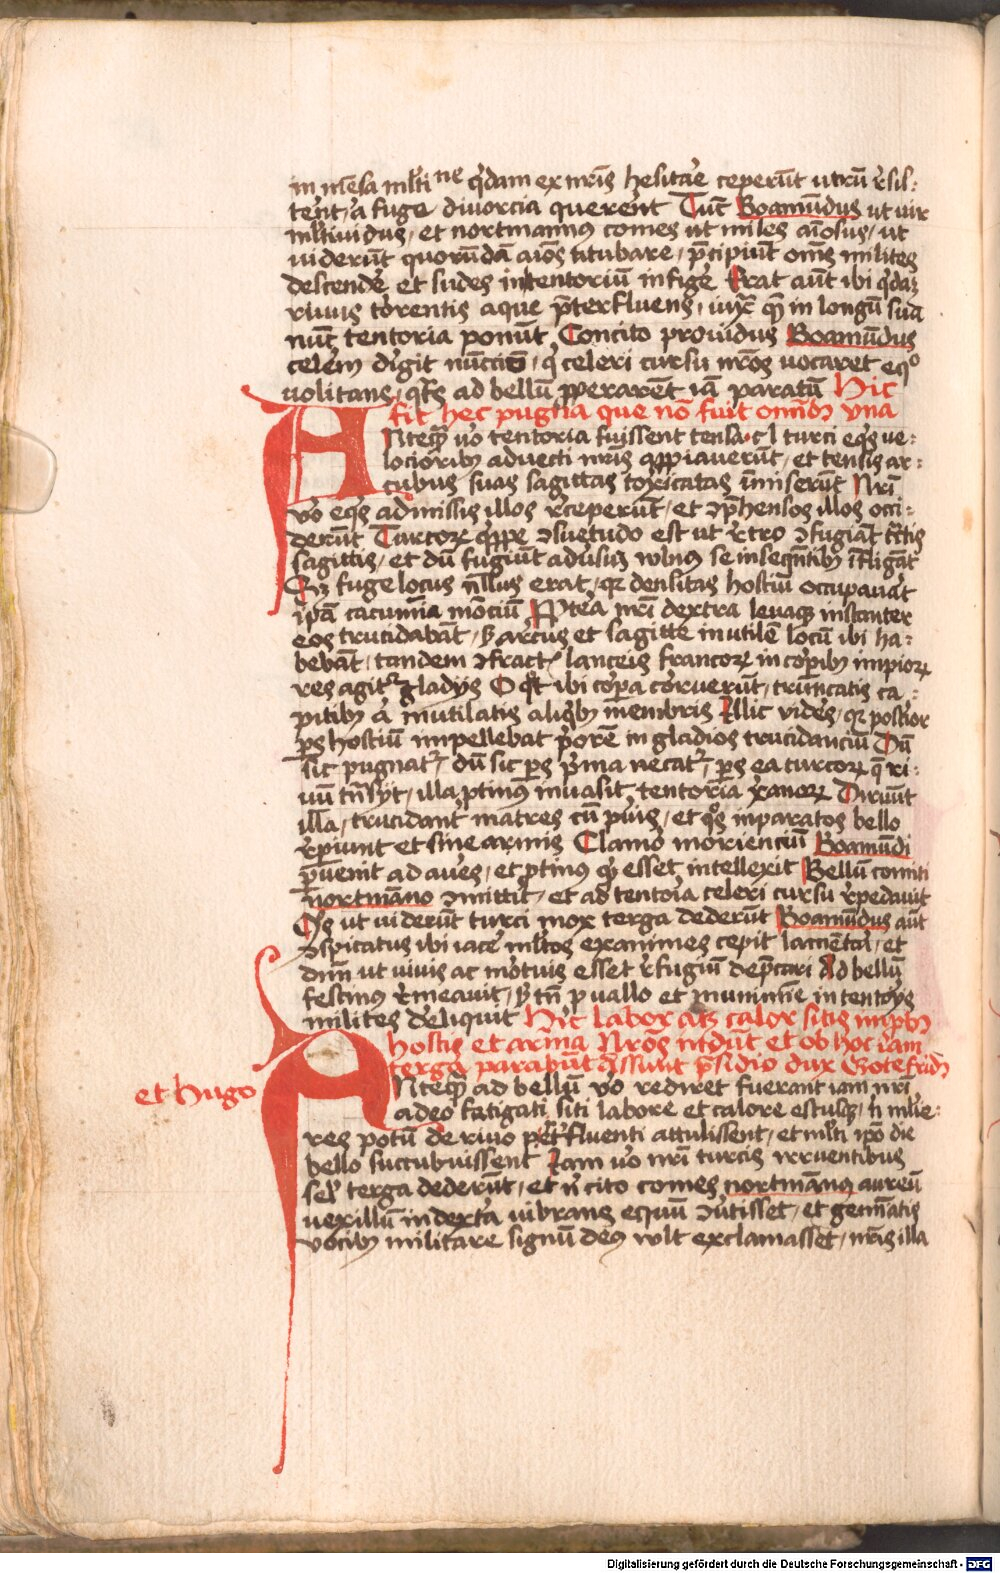 in mēsa ml̄tine q̄dam ex nr̄is hesitar̄e ceperūt utrū r̄sis-
terēt, a fuge diuorcia quererēt Tūc Boamūdus ut uir
et nortmannus comes ut miles aīosus, ut
uiderūt quorūdā aīos titubare, p̄cipiūt om̄s milites
descendere et sudes in tentoriū infige Erat aūt ibi q̄daȝ
riuus torentis aque p̄terfluens, iuxͣ quē in longū sua
nūc tentoria ponūt Concito prouidus Boamūdus
celerem dirigit nūcciū, q celeri cursu nr̄os uocaret eqͦ
uolitans, qͣtꝰ ad bellū ꝓperarēt iā paratū Hic
fit hec pugna que nō fuit omībꝫ vna
Anteqͣ uo tentoria fuissent tensa cl turci eqꝭ ue-
locioribꝰ aduecti nr̄is appiauerūt, et tensis ar-
cubus suas sagittas toxicatas imiserūt Nr̄i
uo eqꝭ admissis illos r̄ceperūt, et ꝯp̄hensos illos occi-
derūt Turcorꝝ q̄ppe ꝯsuetudo est ut r̄tro ꝯfugiāt
sagittis, et dū fugiūt adusꝰ uulnꝰ se inseqn̄tibꝰ ifligāt
Sꝫ fuge locus nullus erat, qꝛ densitas hostiū occupauāt
ip̄a cacumīa mōciū P̄tea nr̄i dextra leuaqꝫ instanter
eos trucidabāt, ꝫ arcus et sagitte inutile locū ibi ha-
bebāt, tandem ꝯfractꝭ lanceis francorꝝ in corꝑibꝰ impiorꝝ
res agitꝛ gladijs O qͦt ibi corꝑa corruerūt, trūncatis ca-
pitibꝰ a mutilatis aliqͥbꝰ membris Illic vides, qꝛ postior
ꝑs hostiū impellebat p̄ore in gladios trucidanciū Dū
sic pugnatꝛ, dū sic ꝑs p̄ma necatꝛ, ꝑs ea turcorꝝ q̄ ri-
uū tn̄sijt, illa ꝓtinꝰ inuasit tentoria xͥanorꝝ Diruūt
illa, trucidant matres cū puis, et qͦs inparatos bello
r̄ꝑiunt et sine armis Clamor moriencium Boamūdi
ꝑuenit ad aures, et ꝓtinꝰ qͥ esset intellexit Bellū comiti
nortmāno ꝯmittit, et ad tentoria celeri cursu r̄pedauit
Qͦs ut uiderūt turci mox terga dederūt Boamūdus aūt
ꝯspicatus ibi iacere ml̄tos examines cepit lamentar̄, et
dn̄m ut uiuis ac mortuis esset r̄fugiū dep̄cari Ad bellū
festinꝰ r̄meauit, ꝫ tn̄ p uallo et munimīe in tentorijs
milites deliquit Hic labor atqꝫ calor sitis imp̄bꝰ
hostis et arma Nr̄os intdūt et ob hoc iam
terga parabūt Assunt p̄sidio dux Gotefridꝰ
et Hugo
Anteqͣ ad bellū uo rediret fuerant iam nr̄i
adeo fatigati siti labore et calore estusqꝫ, n̄ mlie-
res potū de riuo p̄terfluenti attulissent, et ml̄ti ip̄o die
bello succubuissent Iam uo nr̄i turcis irruentibus
sep̄ terga dederūt, et n̄ cito comes nortmānꝰ aureū
uexillū in dextra uibrans equū ꝯuertisset, et geminatis
uocibꝰ militare signū deꝰ uult exclamasset, nr̄is illa
Digitalisierung gefördert durch die Deutsche Forschungsgemeinschaft - DFG